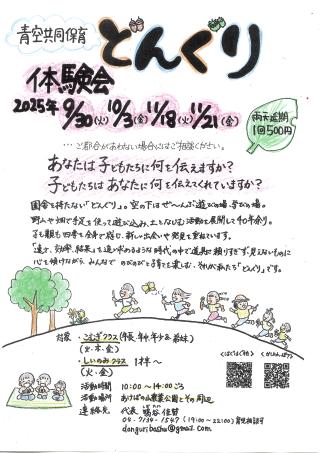 青空共同保育
どんぐり
体験会
2025年 9/30(火) 10/3(金) 11/18(火) 11/21(金)
雨天延期
1回500円
…ご都合があわない場合はご相談ください。
あなたは子どもたちに何を伝えますか?
子どもたちはあなたに何を伝えてくれていますか?
園舎を持たない「どんぐり」。空の下はぜ〜んぶ遊びの場、学びの場。
野山や畑で手足を使って遊び込み、土とともに活動を展開して40年余り。
子も親も四季を全身で感じ、新しい出会いや発見を重ねています。
「速さ、効率、結果」を追い求めるような時代の中で道具に頼りすぎず、見えないものに
心を傾けながら、みんなで のびのび子育てを楽しむ、それが私たち「どんぐり」です。
対象
・こむぎクラス(年長、年中、年少&
(火・木・金)
・しいのみクラス
(火、金)
活動時間 10:00〜14:00ごろ
活動場所 あけぼの山農業公園とその周辺
連絡先 代表
04-7134-1547 (19:00〜22:00)
donguribasho@gmail.com